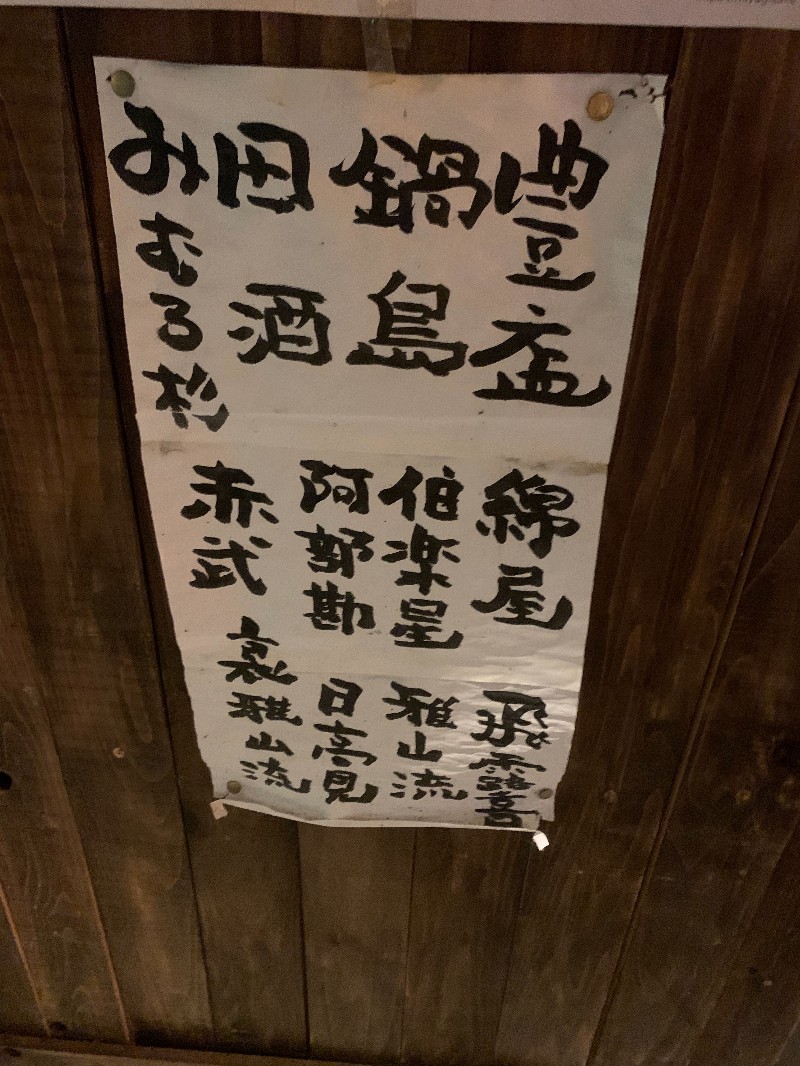 豐盃
鍋島
田酒
みむろ杉
綿屋
伯楽星
阿部勘
赤武
飛露喜
雅山流
日高見
裏雅山流